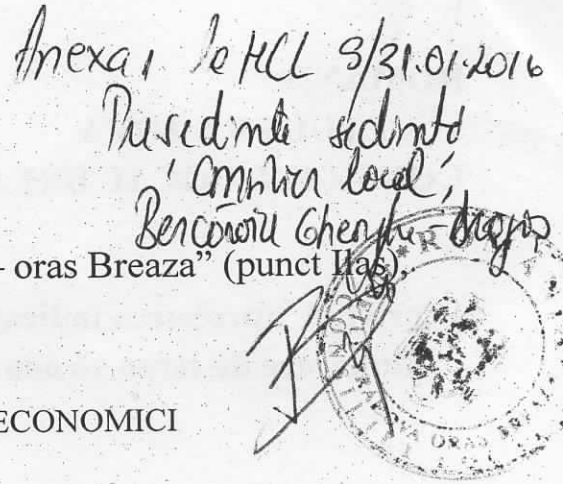 Anexa 1 la HCL 9/31.01.2016
Presedinte sedinta
Consiliu local,
Bercăroiu Gheorghe-Dragoș
- oras Breaza” (punct Ilaș),
ECONOMICI
ORAS BREAZA